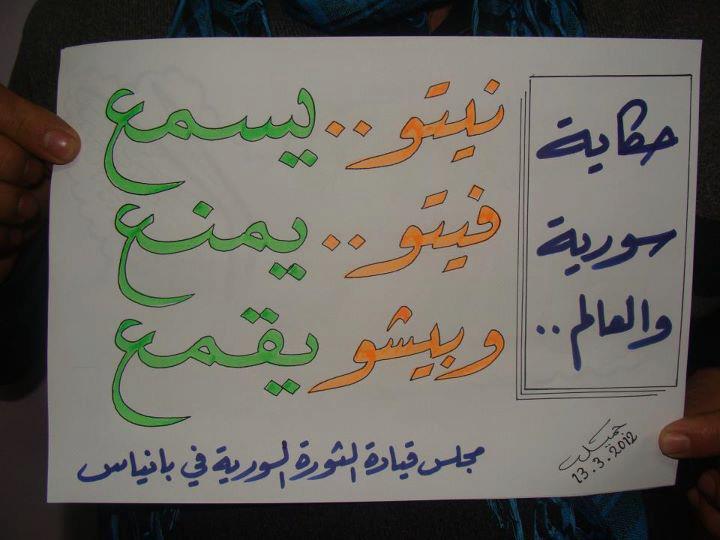 حكاية
سورية
والعالم ..
نيتو .. يسمع
فيتو .. يمنع
وبيشو يقمع
مجلس قيادة الثورة السورية في بانياس
13.3.2012